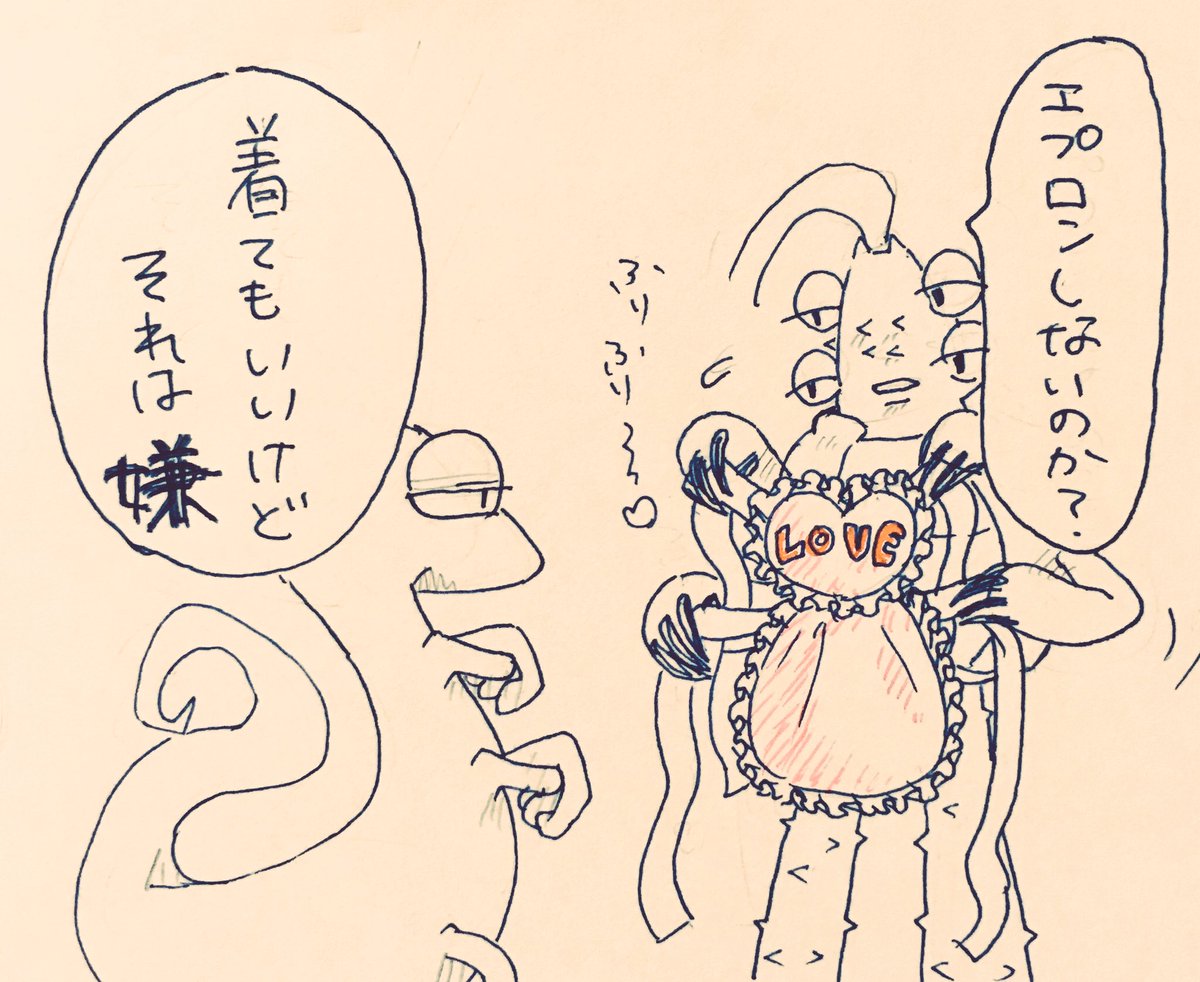 エプロンしないのか?
ふりふり〜♡
LOVE
着てもいいけど
それは嫌